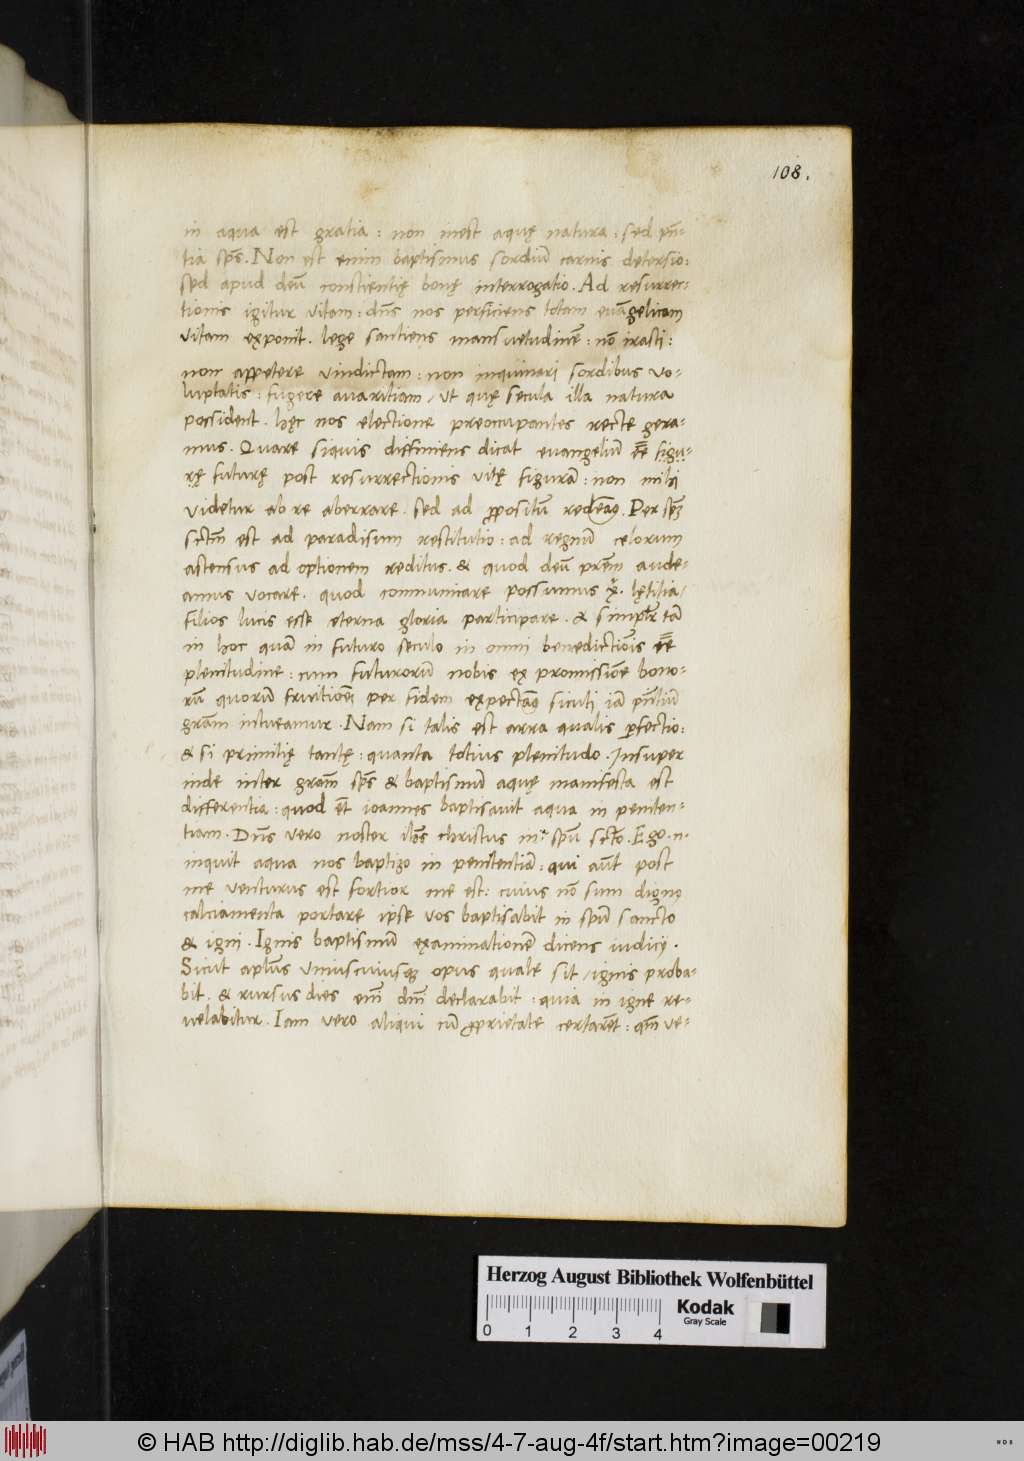 108.
in aqua est gratia : non inest aquę natura : sed pñ-
tia sp̃s. Non est enim baptismus sordiũ carnis detersio:
sed apud deũ constientię bonę interrogatio. Ad resurrec-
tionis igitur vitam : dñs nos perficiens totam euãgelicam
vitam exponit. lege santiens mansuetudinẽ : nõ irasti:
non appetere vindictam : non inquinari sordibus vo-
luptatis : fugere auaritiam / ut quę secula illa natura
possident. hęc nos electione preoccupantes recte gera-
mus. Quare siquis diffiniens dicat euangeliũ eẽ figu-
rę futurę post resurrectionis vitę figurã : non mihi
videtur ab re aberrare. sed ad propositũ redeãꝰ. Per sp̃m
sctm̃ est ad paradisum restitutio : ad regnũ celorum
astensus ad optionem reditus. & quod deũ prẽm aude-
amus vocare. quod communicare possumus lętitia/
filios lucis esse eterna gloria participare. & simplr̃ tã
in hoc quã in futuro seculo in omni benedictiõis eẽ
plenitudine : cum futurorũ nobis ex promissiõe bono-
rũ quorũ fruitiõẽ per fidem expectãꝰ sicuti iã pñtiũ
grãm intueamur. Nam si talis est arra qualis perfectio:
& si primitię tantę : quanta totius plenitudo. Insuper
inde inter grãm sp̃s & baptismũ aquę manifesta est
differentia : quod ẽt ioannes baptisauit aqua in peniten-
tiam. Dñs vero noster iħs christus in sp̃u scto. Ego .n.
inquit aqua nos baptizo in penitentiã : qui aũt post
me venturus est fortior me est : cuius nõ sum dignꝰ
calciamenta portare ipse vos baptisabit in sp̃u sancto
& igni. Ignis baptismũ examinationẽ dicens iudicij.
Sicut aplũs uniuscuiusqꝫ opus quale sit / ignis proba-
bit. & rursus dies eñi dñi declarabit : quia in igne re-
uelabitur. Iam vero aliqui cũ proprietate certarẽt : qm̃ ve-
Herzog August Bibliothek Wolfenbüttel
0 1 2 3 4
Kodak
Gray Scale
© HAB http://diglib.hab.de/mss/4-7-aug-4f/start.htm?image=00219